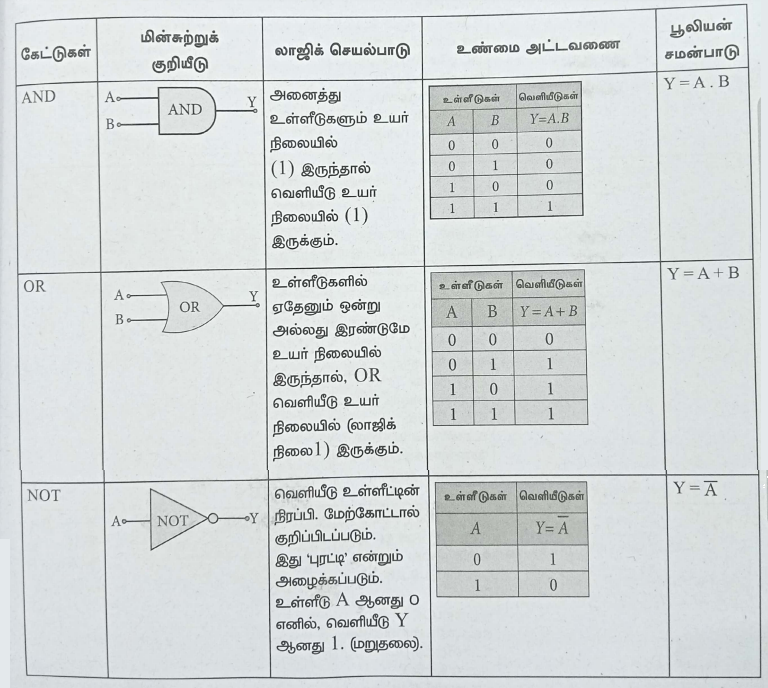 கேட்டுகள்
மின்சுற்றுக்
குறியீடு
லாஜிக் செயல்பாடு
உண்மை அட்டவணை
பூலியன்
சமன்பாடு
AND
A
B
AND
Y
அனைத்து
உள்ளீடுகளும் உயர்
நிலையில்
(1) இருந்தால்
வெளியீடு உயர்
நிலையில் (1)
இருக்கும்.
உள்ளீடுகள் வெளியீடுகள்
A B Y=A.B
0 0 0
0 1 0
1 0 0
1 1 1
Y = A . B
OR
A
B
OR
Y
உள்ளீடுகளில்
ஏதேனும் ஒன்று
அல்லது இரண்டுமே
உயர் நிலையில்
இருந்தால், OR
வெளியீடு உயர்
நிலையில் (லாஜிக்
நிலை1) இருக்கும்.
உள்ளீடுகள் வெளியீடுகள்
A B Y = A + B
0 0 0
0 1 1
1 0 1
1 1 1
Y = A + B
NOT
A
NOT
Y
வெளியீடு உள்ளீட்டின்
நிரப்பி. மேற்கோட்டால்
குறிப்பிடப்படும்.
இது 'புரட்டி' என்றும்
அழைக்கப்படும்.
உள்ளீடு A ஆனது 0
எனில், வெளியீடு Y
ஆனது 1. (மறுதலை).
உள்ளீடுகள் வெளியீடுகள்
A Y= A̅
0 1
1 0
Y = A̅